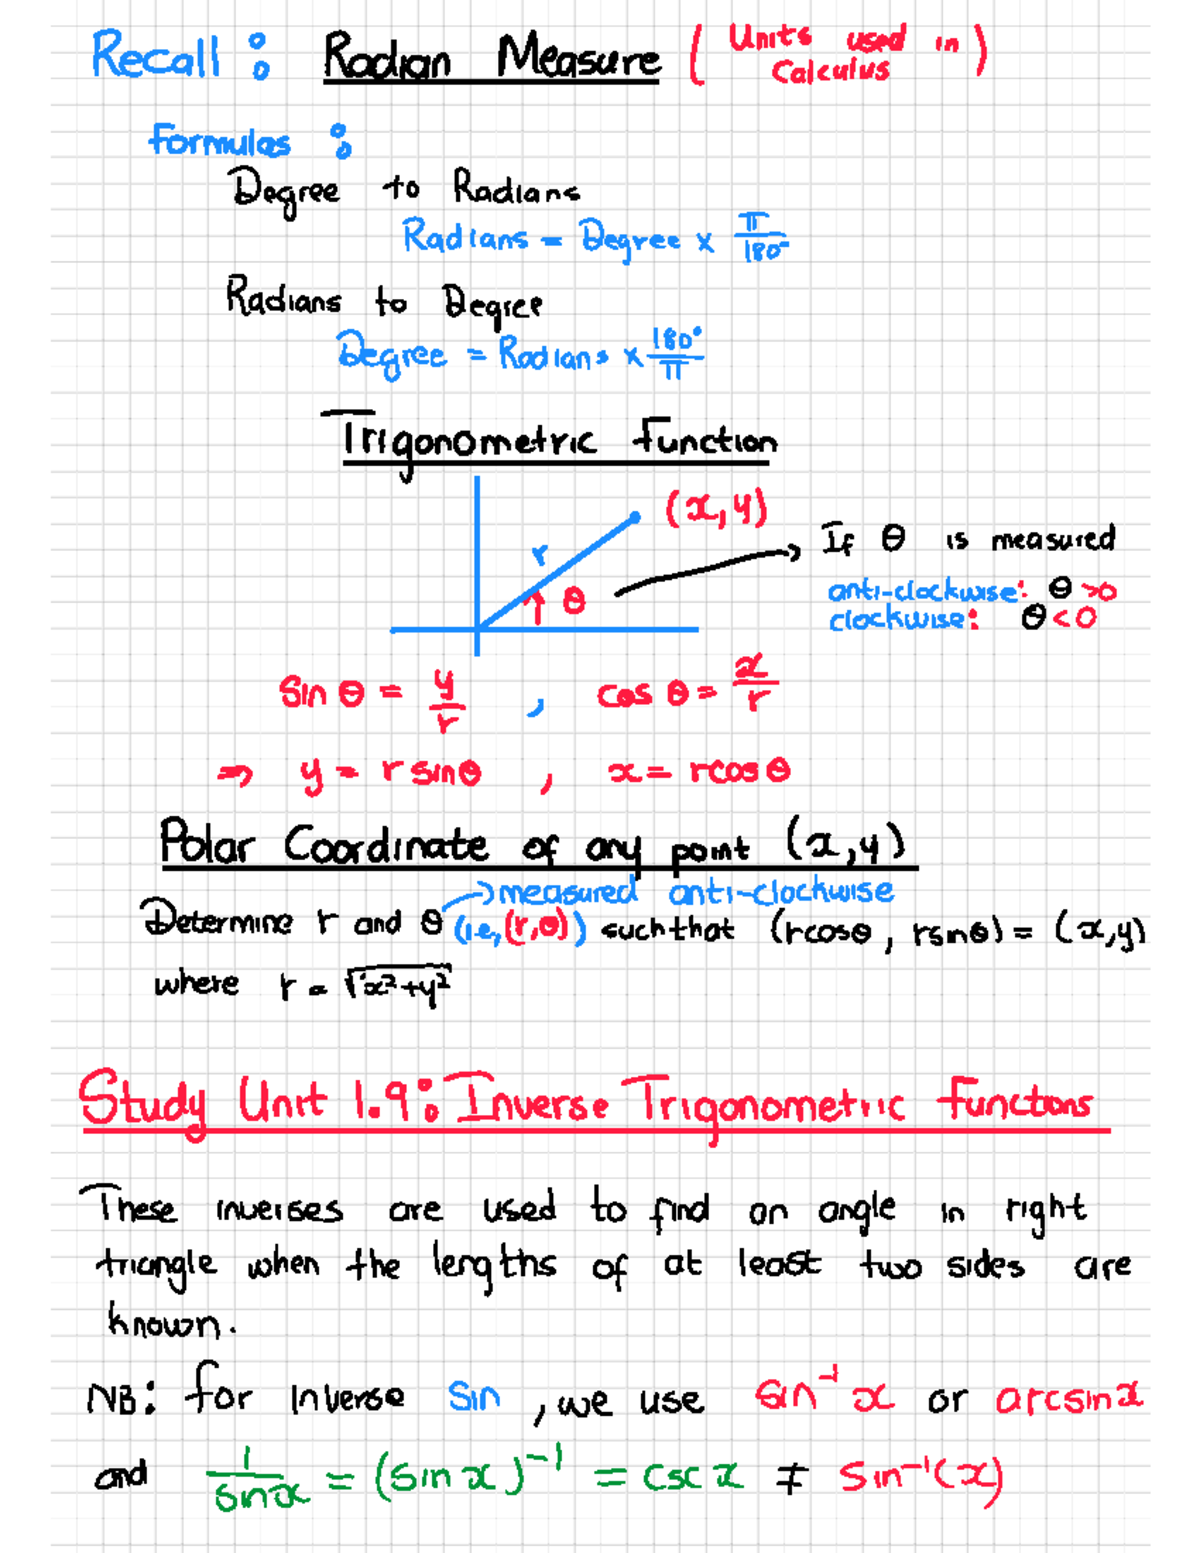 Recall: Radian Measure (Units used in Calculus)
Formulas:
Degree to Radians
Radians = Degree × π/180°
Radians to Degree
Degree = Radians × 180°/π
Trigonometric Function
(x,y)
r
θ
If θ is measured
anti-clockwise: θ >0
clockwise: θ<0
sin θ = y/r , cos θ = x/r
⇒ y = r sinθ , x = rcos θ
Polar Coordinate of any point (x,y)
→measured anti-clockwise
Determine r and θ (i.e, (r,θ)) such that (rcosθ, rsinθ) = (x,y)
where r = √x²+y²
Study Unit 1.9: Inverse Trigonometric Functions
These inverses are used to find an angle in right
triangle when the lengths of at least two sides are
known.
NB: for Inverse Sin, we use sin⁻¹ x or arcsinx
and 1/sinx = (sin x)⁻¹ = csc x ≠ sin⁻¹(x)